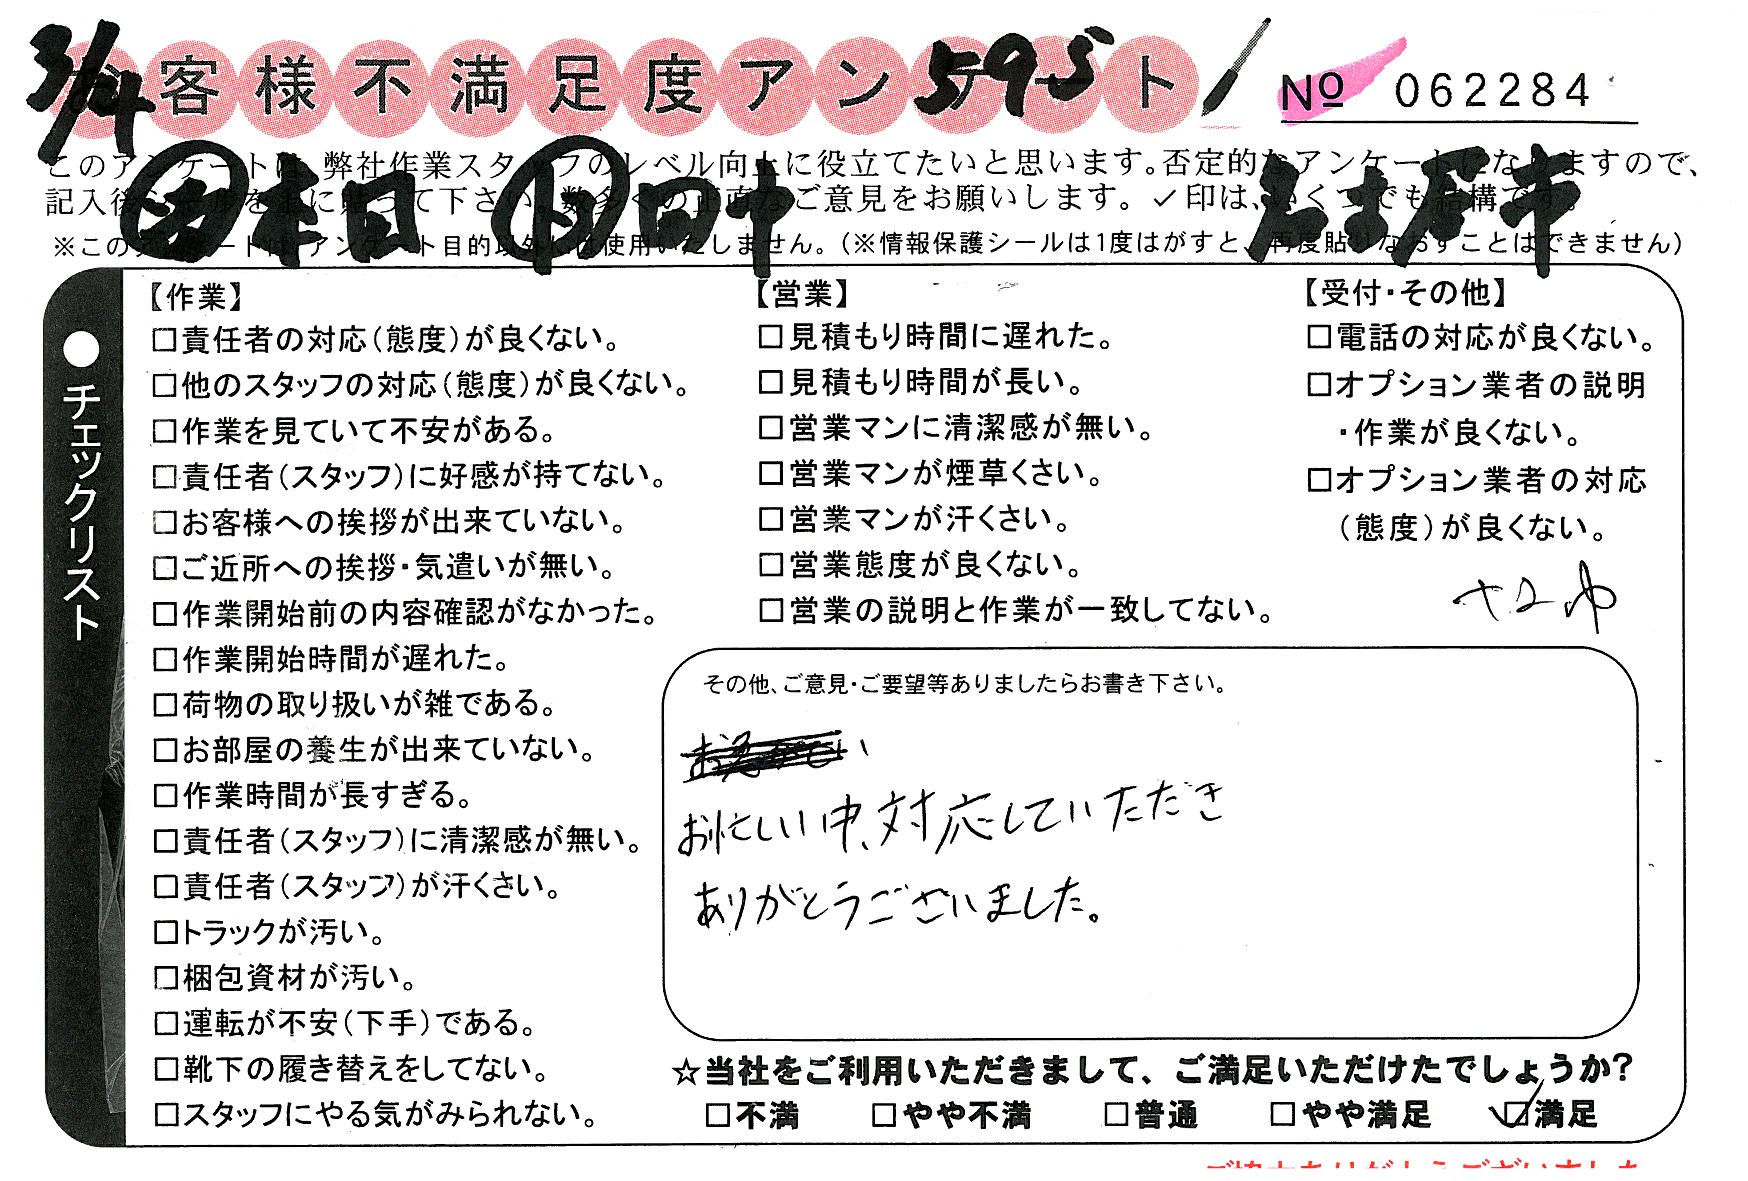 3/14
お客様不満足度アンケート
595
No 062284
このアンケートは、弊社作業スタッフのレベル向上に役立てたいと思います。否定的なアンケートになりますので、
記入後シールを上に貼って下さい。数多くの正直なご意見をお願いします。✓印は、いくつでも結構です。
本田 田中 名古屋市
※このアンケートは、アンケート目的以外には使用いたしません。(※情報保護シールは1度はがすと、再度貼りなおすことはできません)
●チェックリスト
【作業】
□責任者の対応(態度)が良くない。
□他のスタッフの対応(態度)が良くない。
□作業を見ていて不安がある。
□責任者(スタッフ)に好感が持てない。
□お客様への挨拶が出来ていない。
□ご近所への挨拶・気遣いが無い。
□作業開始前の内容確認がなかった。
□作業開始時間が遅れた。
□荷物の取り扱いが雑である。
□お部屋の養生が出来ていない。
□作業時間が長すぎる。
□責任者(スタッフ)に清潔感が無い。
□責任者(スタッフ)が汗くさい。
□トラックが汚い。
□梱包資材が汚い。
□運転が不安(下手)である。
□靴下の履き替えをしてない。
□スタッフにやる気がみられない。
【営業】
□見積もり時間に遅れた。
□見積もり時間が長い。
□営業マンに清潔感が無い。
□営業マンが煙草くさい。
□営業マンが汗くさい。
□営業態度が良くない。
□営業の説明と作業が一致してない。
【受付・その他】
□電話の対応が良くない。
□オプション業者の説明
・作業が良くない。
□オプション業者の対応
(態度)が良くない。
その他、ご意見・ご要望等ありましたらお書き下さい。
お忙しい中、対応していただき
ありがとうございました。
☆当社をご利用いただきまして、ご満足いただけたでしょうか?
□不満 □やや不満 □普通 □やや満足 ☑満足
ご協力ありがとうございました